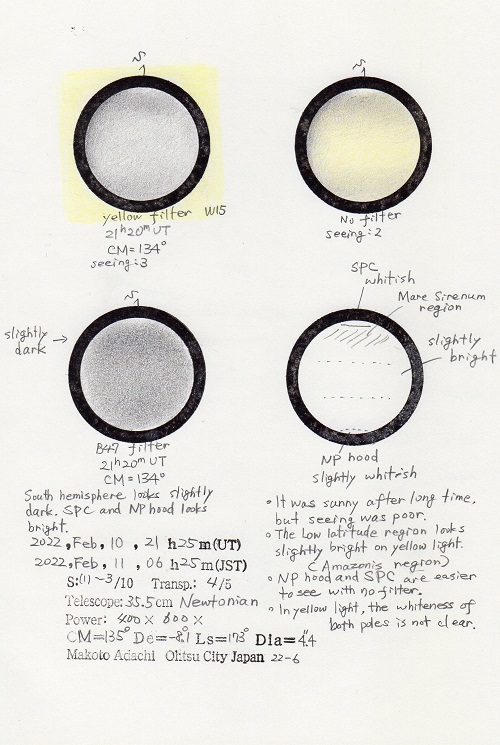 S
S
yellow filter W15
21h20m UT
CM=134°
seeing:3
No filter
seeing:2
S
slightly
dark →
B47 filter
21h20m UT
CM=134°
SPC
whitish
Mare Sirenum
region
slightly
bright
NP hood
slightly whitish
South hemisphere looks slightly
dark. SPC and NP hood looks
bright.
2022, Feb, 10, 21 h25m(UT)
2022, Feb, 11, 06 h25m(JST)
S:(1)~3/10 Transp.: 4/5
Telescope: 35.5cm Newtonian
Power: 400× 600×
CM=135° De=-8.1° Ls=173° Dia=4".4
Makoto Adachi Ohtsu City Japan 22-6
∘ It was sunny after long time,
but seeing was poor.
∘ The Low latitude region looks
slightly bright on yellow light.
(Amazonis region)
∘ NP hood and SPC are easier
to see with no filter.
∘ In yellow light, the whiteness of
both poles is not clear.